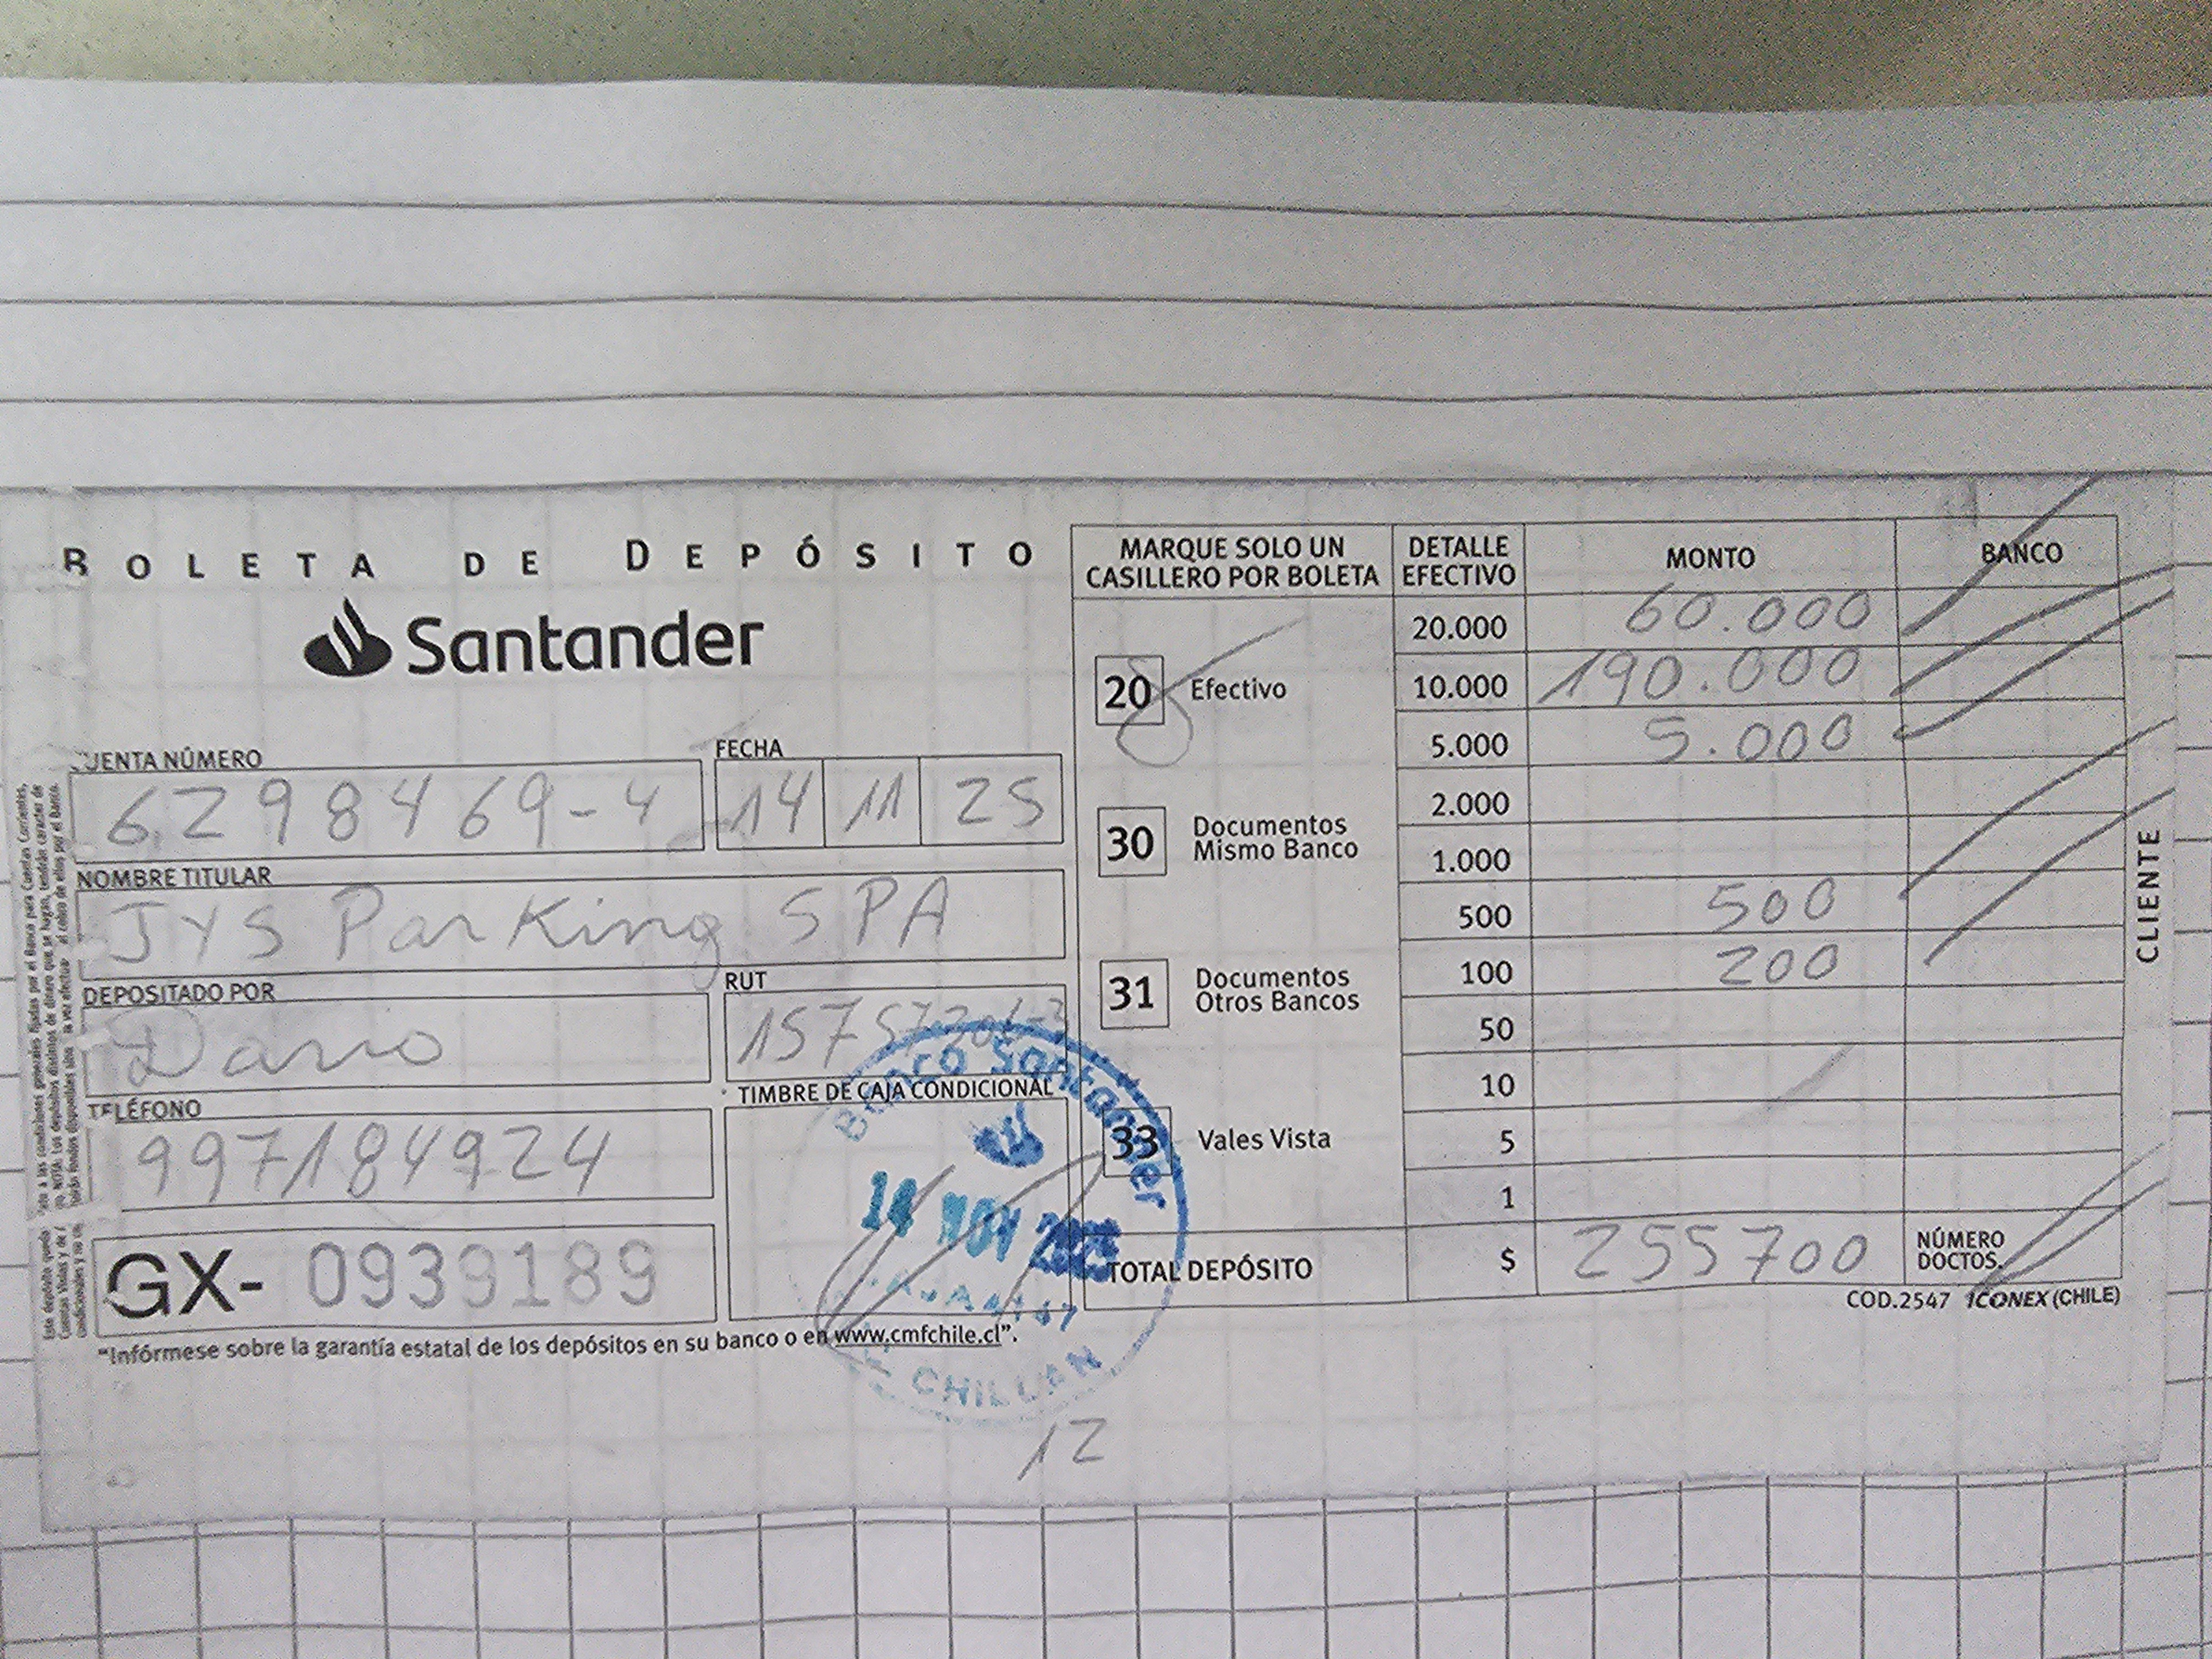 BOLETA DE DEPÓSITO
Santander
CUENTA NÚMERO
6298469-4
FECHA
14 11 25
NOMBRE TITULAR
JYS Parking SPA
DEPOSITADO POR
Dario
RUT
TELÉFONO
997184924
TIMBRE DE CAJA CONDICIONAL
GX- 0939189
"Infórmese sobre la garantía estatal de los depósitos en su banco o en www.cmfchile.cl".
MARQUE SOLO UN
CASILLERO POR BOLETA
20 Efectivo
30 Documentos
Mismo Banco
31 Documentos
Otros Bancos
33 Vales Vista
DETALLE
EFECTIVO
MONTO
BANCO
20.000 60.000
10.000 190.000
5.000 5.000
2.000
1.000
500 500
100 200
50
10
5
1
TOTAL DEPÓSITO $ 255700
NÚMERO
DOCTOS.
COD.2547 ICONEX (CHILE)
CLIENTE
Banco Santander
14 NOV 2025
CHILLAN
12